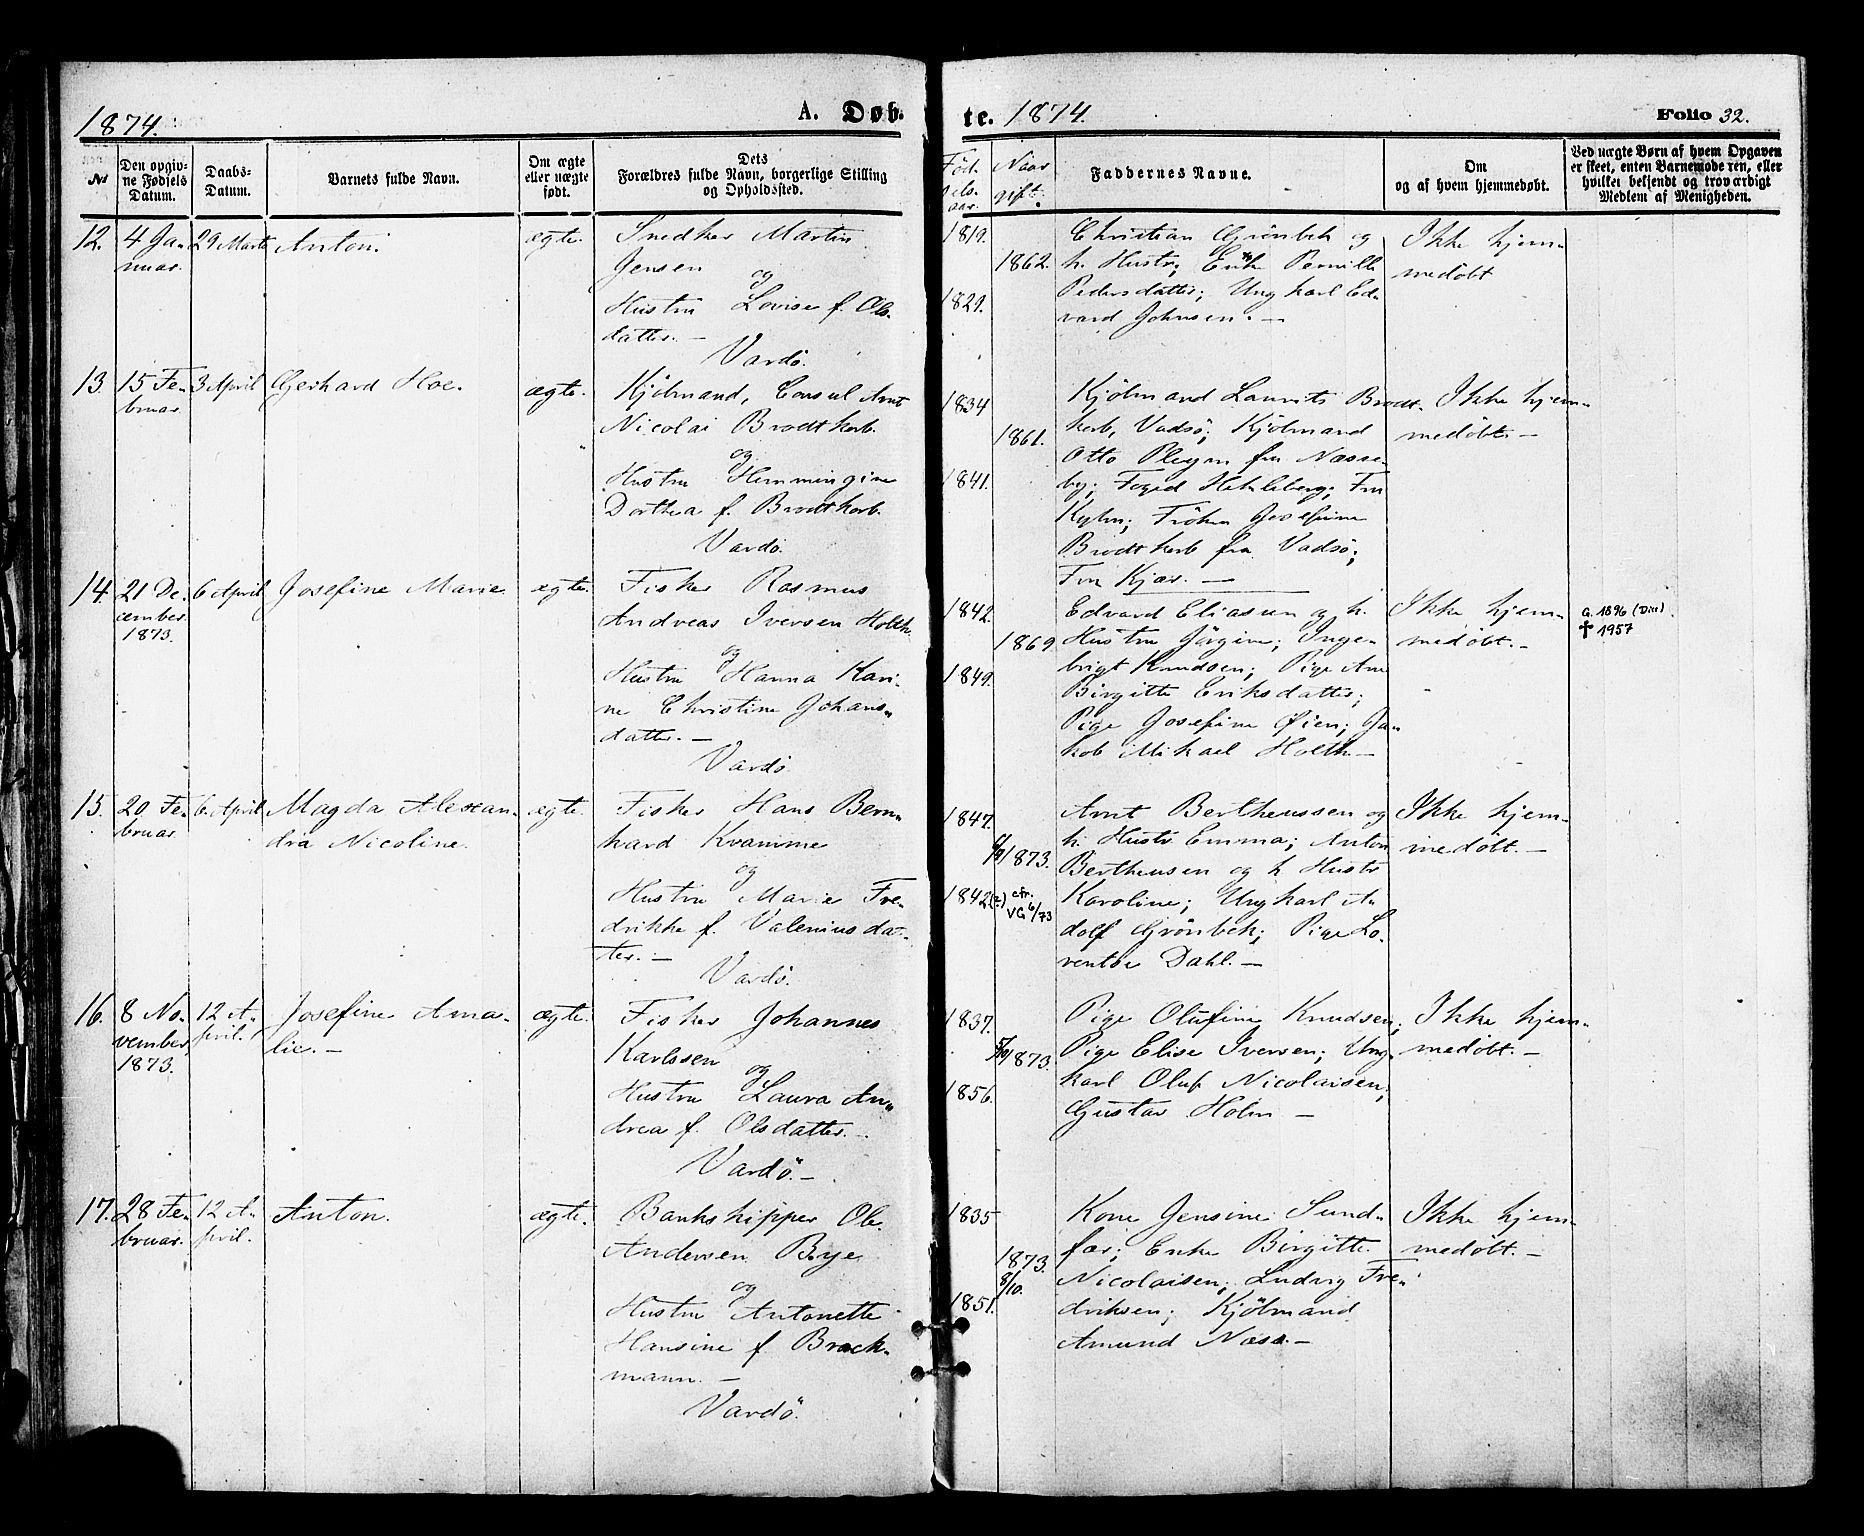 1874.
A. Døb-
te. 1874.
Folio 32.
Nº
Den opgiv-
ne Fødsels
Datum.
Daabs-
Datum.
Barnets fulde Navn.
Om ægte
eller uægte
født.
Dets
Forældres fulde Navn, borgerlige Stilling
og Opholdssted.
Föd-
sels-
aar.
Naar
gift.
Faddernes Navne.
Om
og af hvem hjemmedøbt.
Ved uægte Børn af hvem Opgaven
er skeet, enten Barnemoderen, eller
hvilket bekjendt og troværdigt
Medlem af Menigheden.
12.
4 Ja-
nuar.
29 Marts
Anton.
ægte.
Snedker Martin
Jensen
og
Hustru Lovise f. Ols-
datter. —
Vardö.
1819.
1862.
1829.
Christian Grönbek og
h. Hustr; Enke Pernille
Pedersdatter; Ungkarl Ed-
vard Johnsen. —
Ikke hjem-
medöbt
13.
15 Fe-
bruar.
3 April
Gerhard Hoe.
ægte.
Kjöbmand, Consul Arnt
Nicolai Brodtkorb.
og
Hustru Hemmingine
Dorthea f. Brodtkorb.
Vardö.
1834
1861.
1841.
Kjöbmand Laurits Brodt-
korb, Vadsö; Kjöbmand
Otto Pleym fra Næsse-
by; Foged
Fru
Fröken Josefine
Brodtkorb fra Vadsö;
Fru Kjær. —
Ikke hjem-
medöbt. —
14.
21 De-
cember
1873.
6 April
Josefine Marie
ægte.
Fisker Rasmus
Andreas Iversen Holth
og
Hustru Hanna Kari-
ne Christine Johans-
datter. —
Vardö
1842.
1869
1849.
Edvard Eliassen og h.
Hustru Jörgine; Inge-
brigt Knudsen; Pige Ane
Birgitte Eriksdatter;
Pige Josefine Øien; Ja-
kob Mikael Holth —
Ikke hjem-
medöbt. —
G. 1896 (Dis)
✝ 1957
15.
20 Fe-
bruar.
6. April
Magda Alexan-
dra Nicoline.
ægte.
Fisker Hans Bern-
hard Kvamme
og
Hustru Marie Fre-
drikke f. Valeniusdat-
ter. —
Vardö.
1847.
1873.
1842(?) cfr.
VG 6/73
Arnt Bertheussen og
h. Hustr Emma; Anton
Bertheusen og h Hustr
Karoline; Ungkarl A-
dolf Grönbek; Pige Lo-
rentse Dahl. —
Ikke hjem-
medöbt. —
16.
8 No-
vember
1873.
12 A-
pril.
Josefine Ama-
lie. —
ægte.
Fisker Johannes
Karlssen
og
Hustru Laura An-
drea f. Olsdatter. —
Vardö. —
1837.
1873.
1856.
Pige Olufine Knudsen;
Pige Elise Iversen; Ung-
karl Oluf Nicolaisen;
Gustav Holm —
Ikke hjem-
medöbt. —
17.
28 Fe-
bruar.
12 A-
pril.
Anton.
ægte.
Bankskipper Ole
Andersen Bye
og
Hustru Antonette
Hansine f. Brock-
mann. —
Vardö.
1835
1873.
8/10.
1851.
Kone Jensine Sund-
fær; Enke Birgitte
Nicolaisen; Ludvig Fre-
driksen; Kjöbmand
Amund Næss. —
Ikke hjem-
medöbt. —